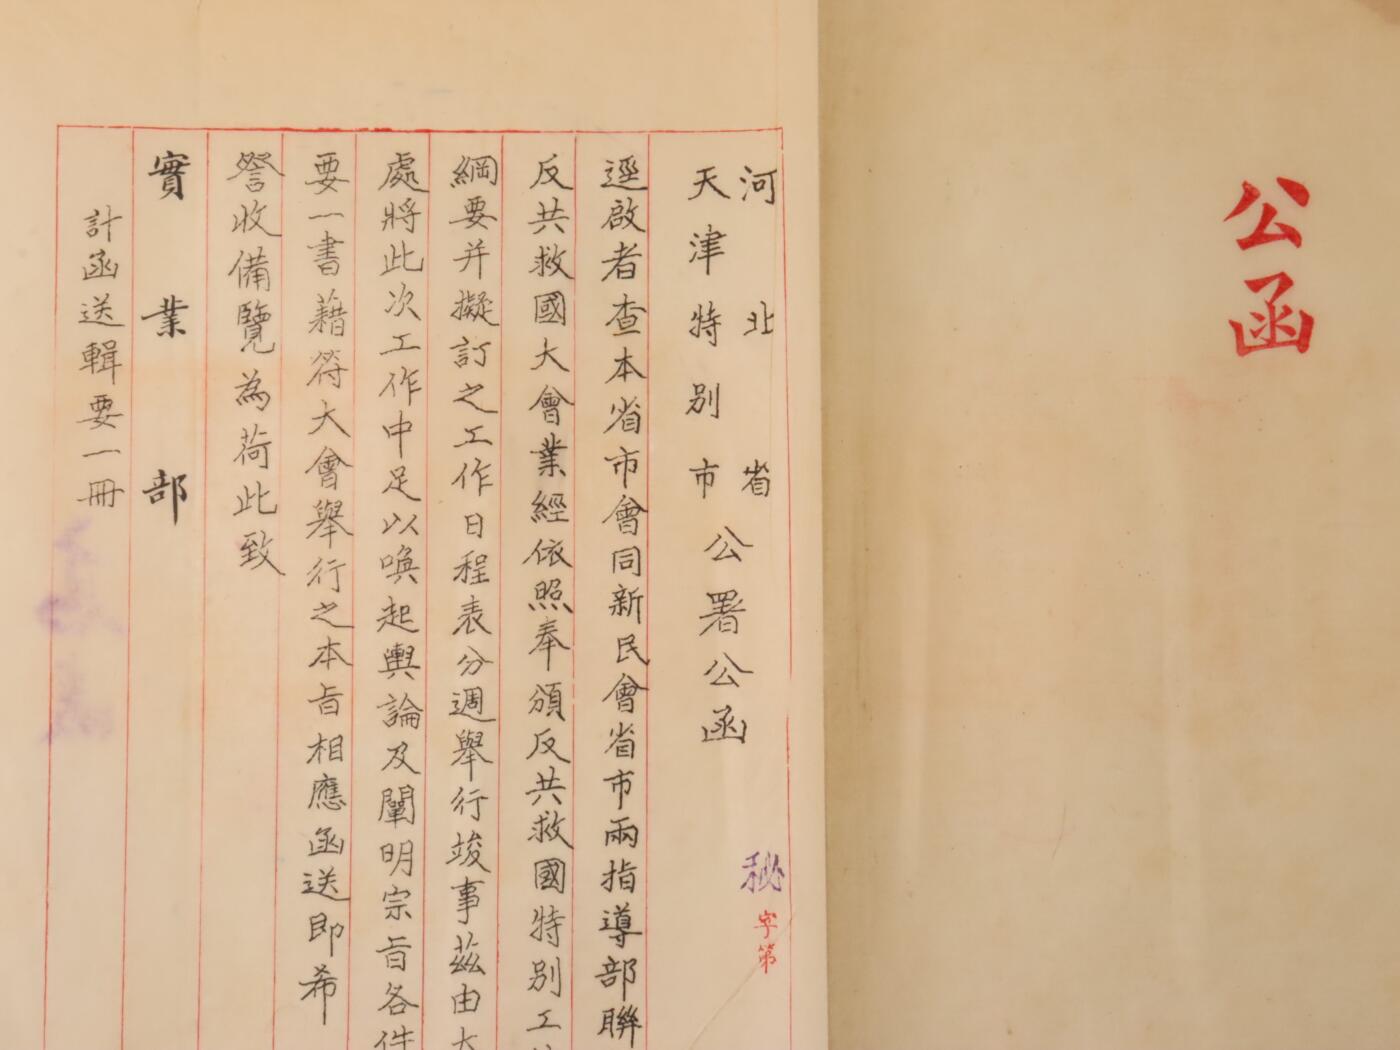 公函
河北省
天津特別市公署公函
秘字第
逕啟者查本省市會同新民會省市兩指導部聯
反共救國大會業經依照奉頒反共救國特別工
綱要并擬訂之工作日程表分週舉行竣事茲由大
處將此次工作中足以喚起輿論及闡明宗旨各件
要一書藉符大會舉行之本旨相應函送即希
詧收備覽為荷此致
實業部
計函送輯要一冊